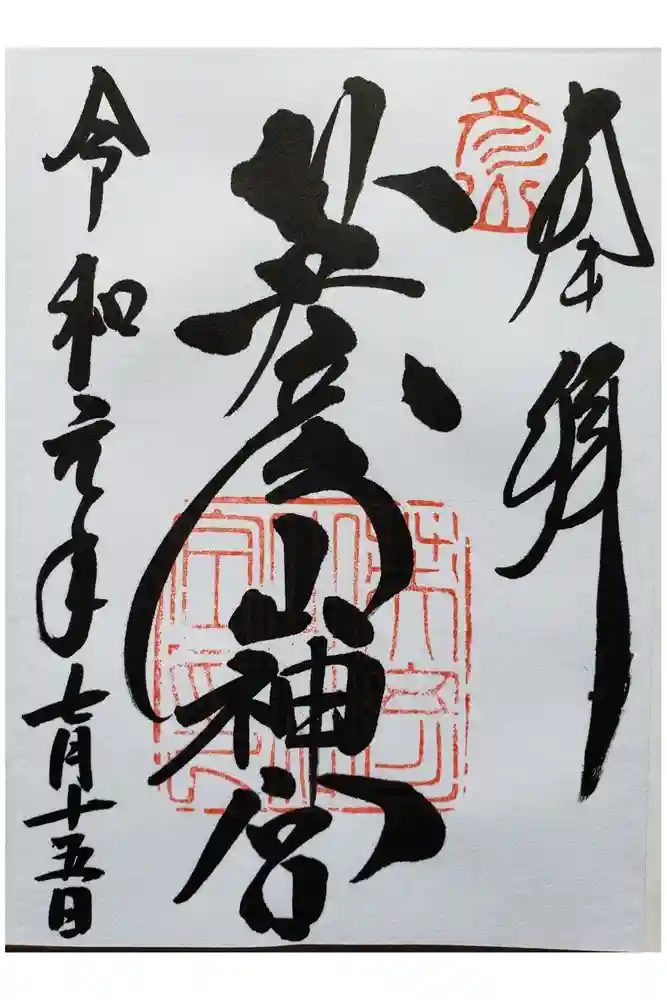 奉拝
彦山
英彦山神宮
令和元年七月十五日